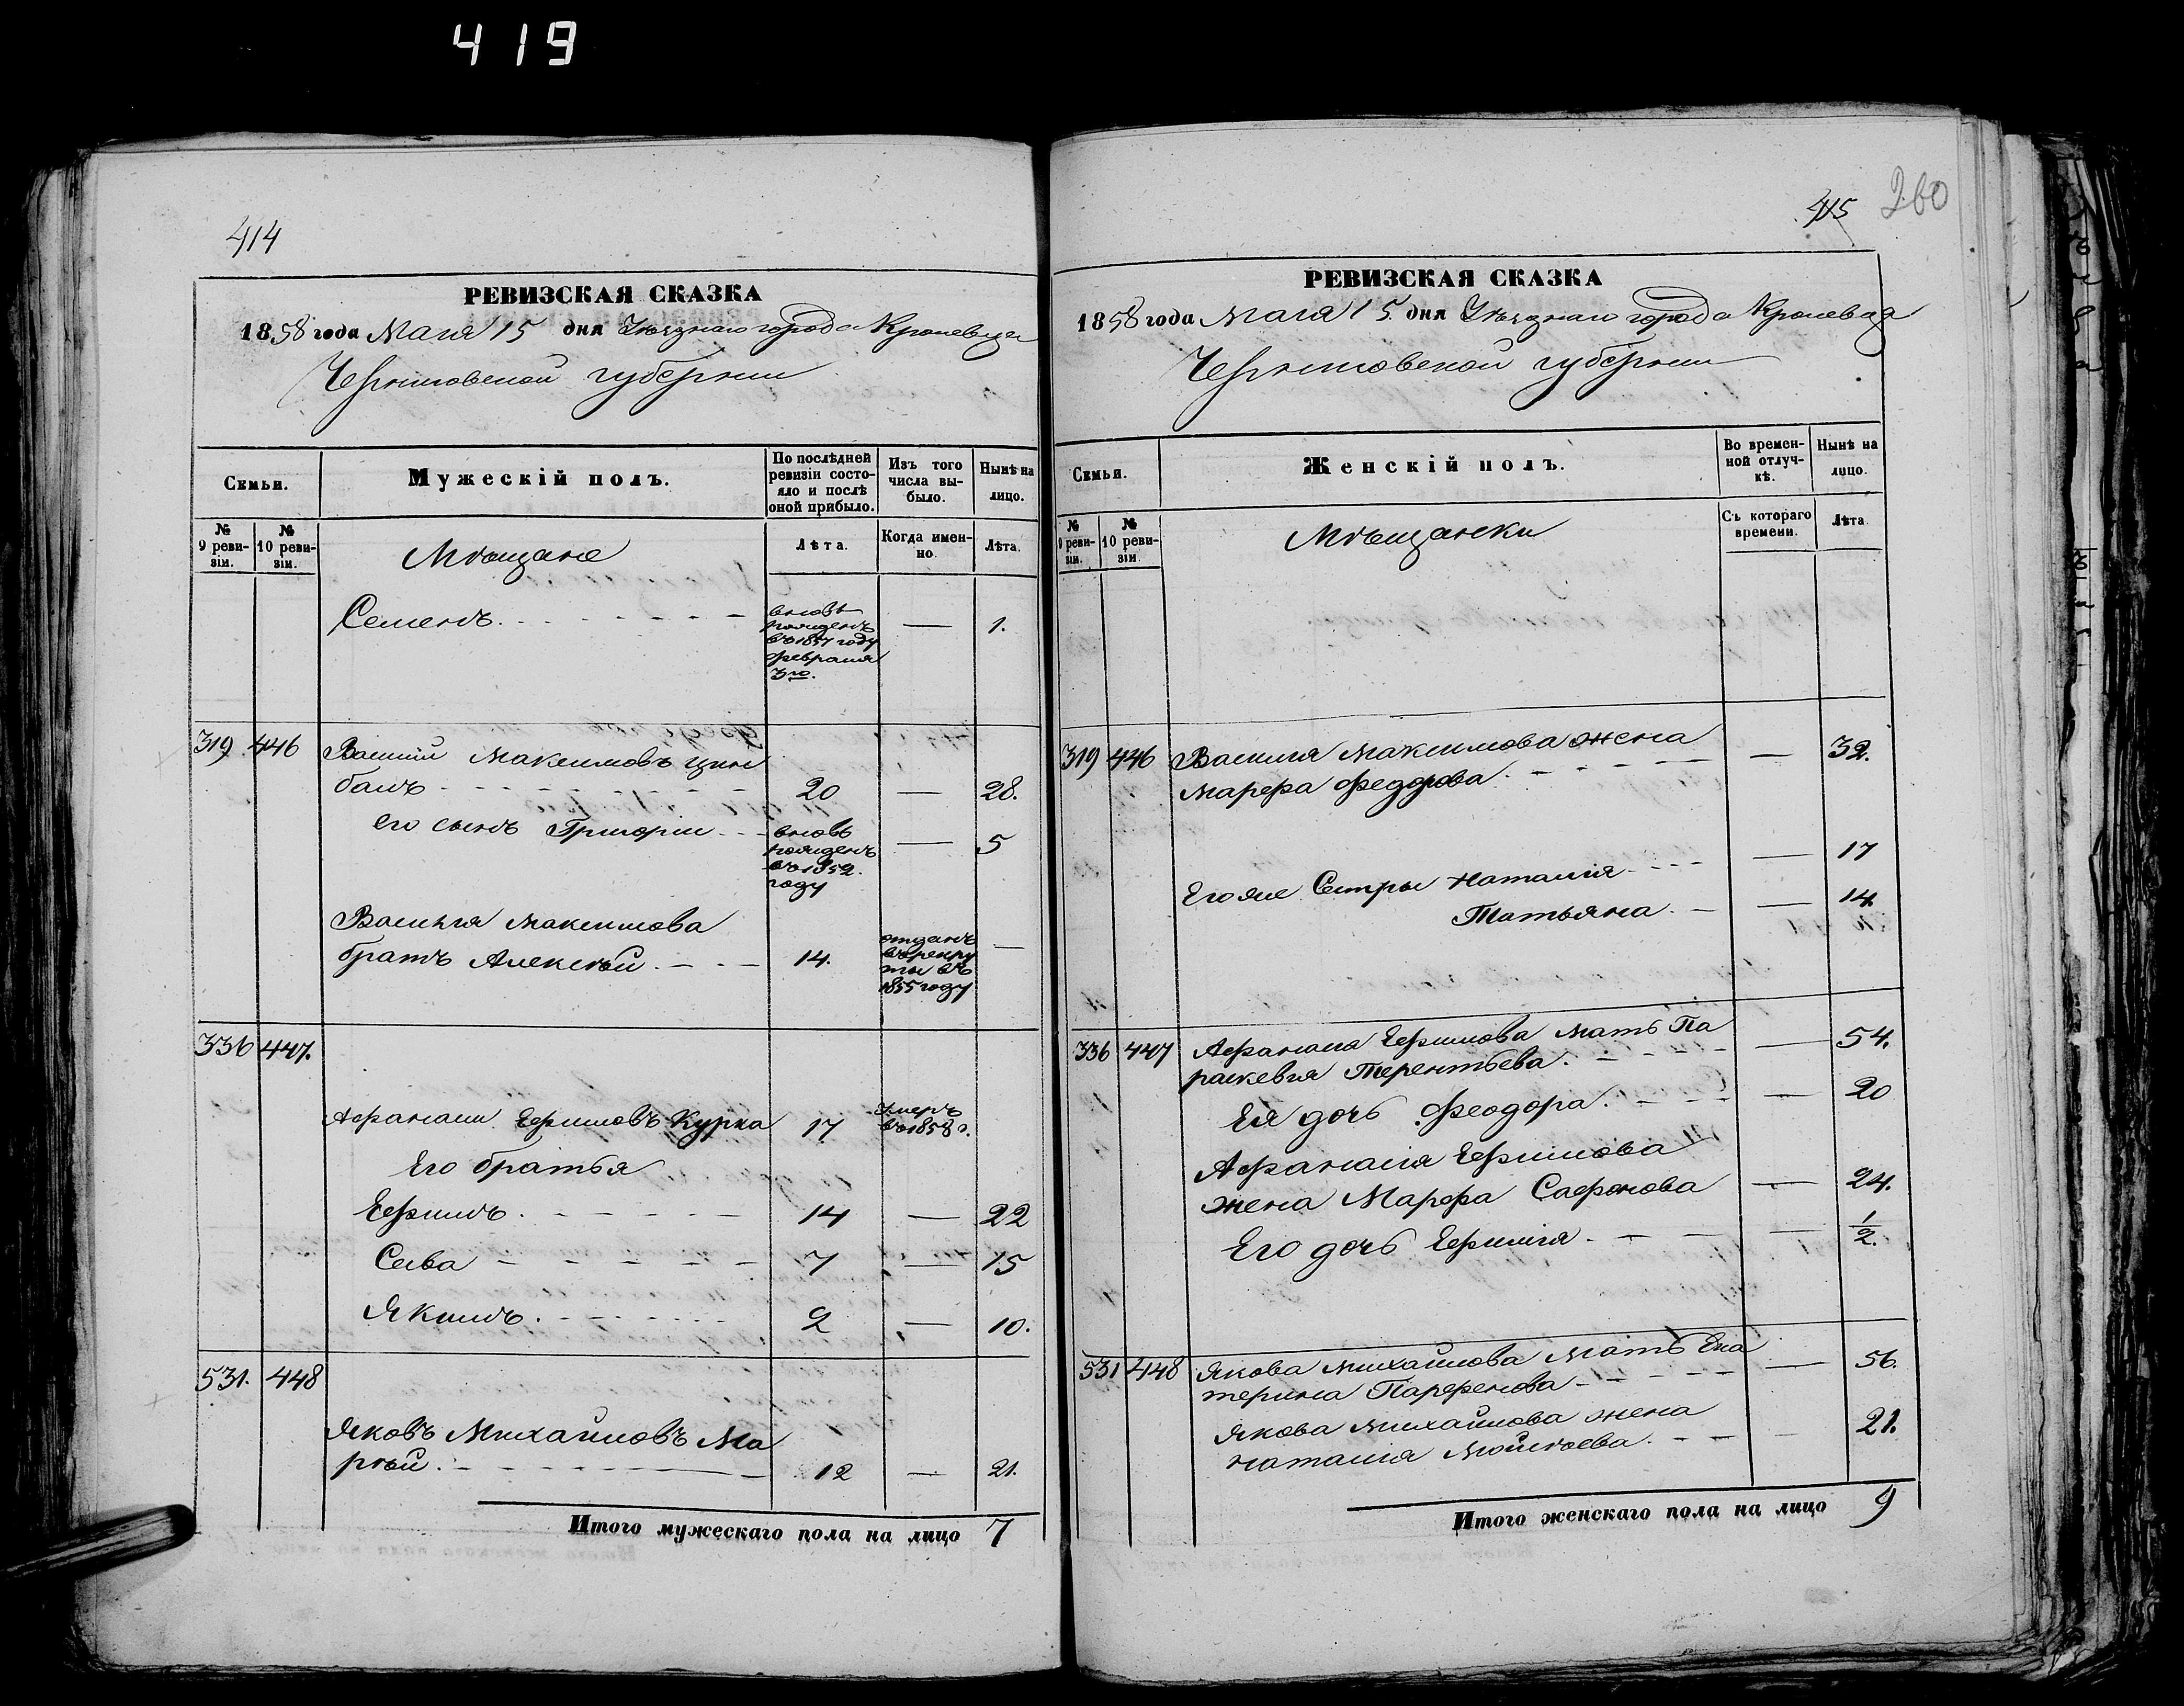 419
414
РЕВИЗСКАЯ СКАЗКА
1858 года Маія 15 дня Уѣзднаго города Кролевца
Черниговской губерніи
Семьи.
Мужескій полъ.
По послѣдней ревизіи состояло и послѣ оной прибыло.
Изъ того числа выбыло.
Нынѣ на лицо.
№ 9 ревизіи.
№ 10 ревизіи.
Мѣщане
Лѣта.
Когда именно.
Лѣта.
Семенъ. вновь рожденъ въ 1857 году февраля 3го. — 1.
319 446 Василій Максимовъ Цим
балъ 20 — 28.
его сынъ Григорій вновь рожденъ въ 1852. году — 5
Василья Максимова
братъ Алексѣй. 14. отданъ въ рекруты въ 1855 году —
336 447.
Афанасій Ефимовъ Курка 17 Умеръ въ 1858 г.
Его братья
Ефимъ. 14 — 22
Сава 7 — 15
Якимъ. 2 — 10.
531. 448
Яковъ Михайловъ Ма
рѣй. 12 — 21.
Итого мужескаго пола на лицо 7
415
260
РЕВИЗСКАЯ СКАЗКА
1858 года Маія 15 дня Уѣзднаго города Кролевца
Черниговской губерніи
Семьи.
Женскій полъ.
Во временной отлучкѣ.
Нынѣ на лицо.
№ 9 ревизіи.
№ 10 ревизіи.
Мѣщанки
Съ котораго времени.
Лѣта.
319 446 Василія Максимова жена — 32.
Марфа Федорова.
Его же Сестры Наталія — 17
Татьяна. — 14.
336 447 Афанасія Ефимова мать Па — 54.
раскевія Терентьева.
Ея дочь Феодора. — 20
Афанасія Ефимова
жена Марфа Сафонова — 24.
Его дочь Ефимія. — 1/2.
531 448 Якова Михайлова мать Ека — 56.
терина Парфенова
Якова Михайлова жена 21.
Наталія Мойсѣева.
Итого женскаго пола на лицо 9